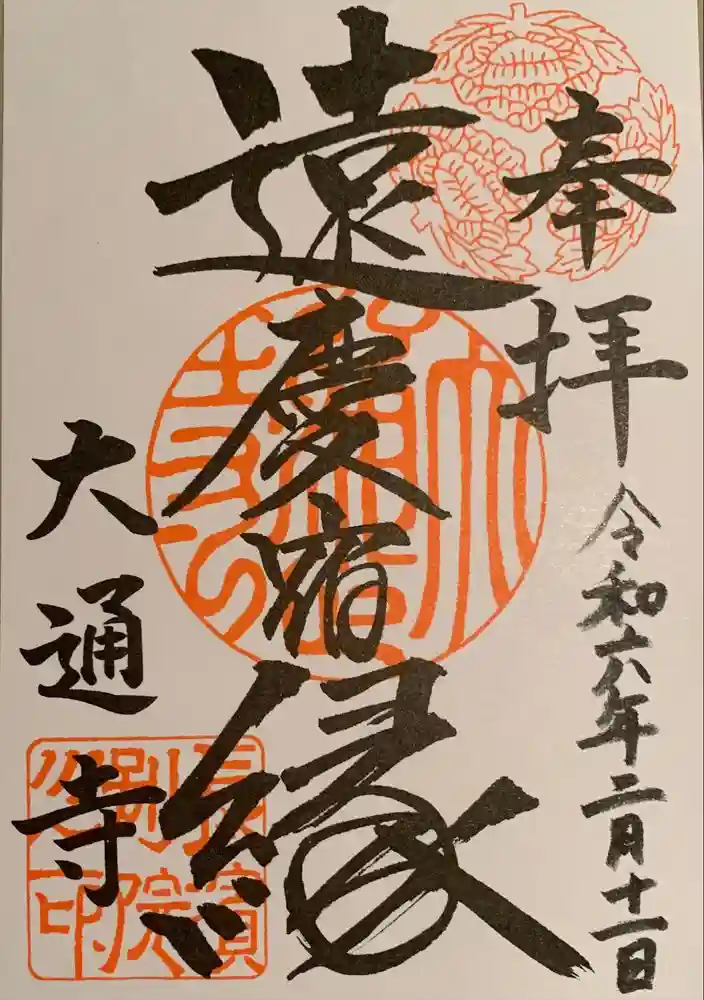 奉拝
令和六年二月十一日
遠慶宿縁
大通寺
長濱
別院
之印